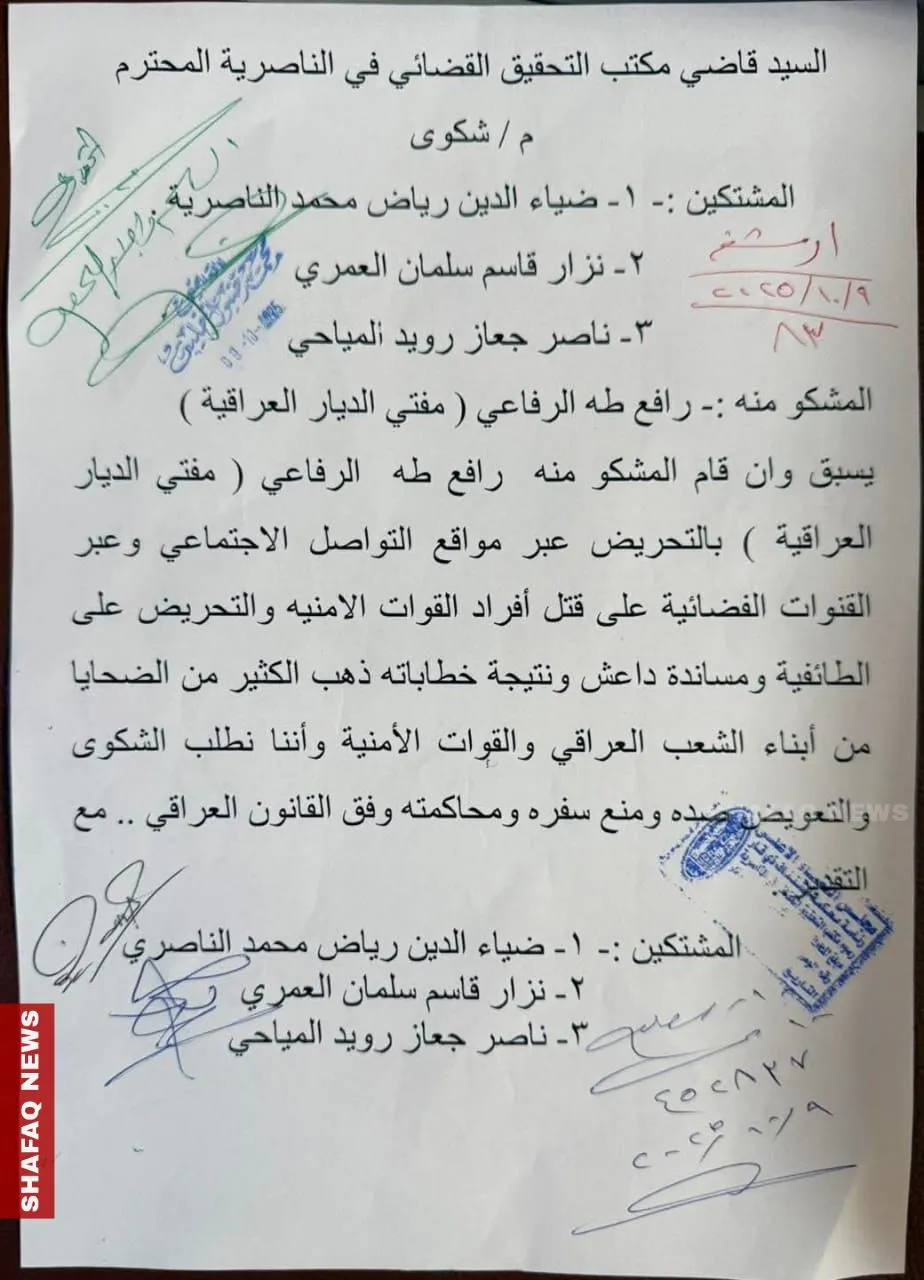 السيد قاضي مكتب التحقيق القضائي في الناصرية المحترم
م / شكوى
المشتكين :- ١- ضياء الدين رياض محمد الناصرية
٢- نزار قاسم سلمان العمري
٣- ناصر جعاز رويد المياحي
٢٠٢٥/١٠/٩
٨٣
09-10-2025
المشكو منه :- رافع طه الرفاعي ( مفتي الديار العراقية )
يسبق وان قام المشكو منه رافع طه الرفاعي ( مفتي الديار
العراقية ) بالتحريض عبر مواقع التواصل الاجتماعي وعبر
القنوات الفضائية على قتل أفراد القوات الامنيه والتحريض على
الطائفية ومساندة داعش ونتيجة خطاباته ذهب الكثير من الضحايا
من أبناء الشعب العراقي والقوات الأمنية وأننا نطلب الشكوى
والتعويض ضده ومنع سفره ومحاكمته وفق القانون العراقي .. مع
التقدير
المشتكين :- ١- ضياء الدين رياض محمد الناصري
٢- نزار قاسم سلمان العمري
٣- ناصر جعاز رويد المياحي
SHAFAQ NEWS